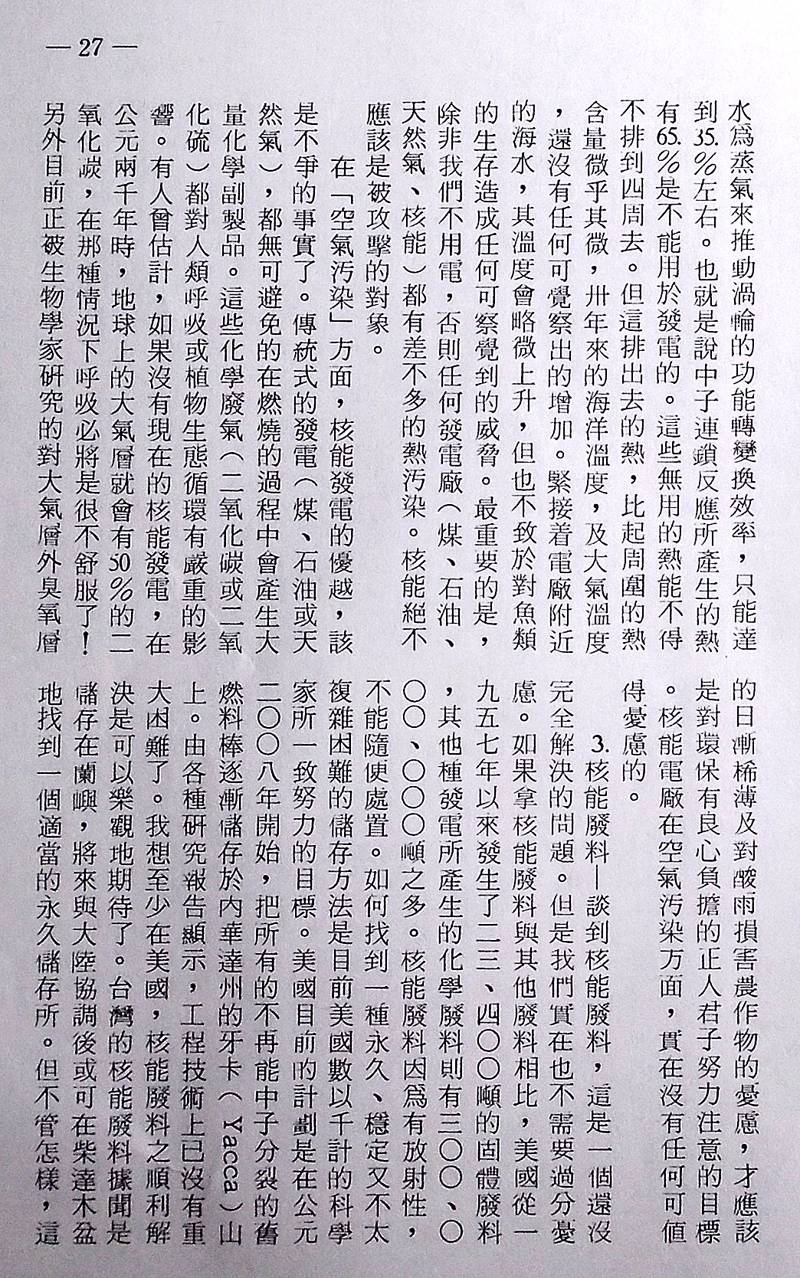 — 27 —
水爲蒸氣來推動渦輪的功能轉變換效率，只能達
到35.%左右。也就是說中子連鎖反應所產生的熱
有65.%是不能用於發電的。這些無用的熱能不得
不排到四周去。但這排出去的熱，比起周圍的熱
含量微乎其微，卅年來的海洋溫度，及大氣溫度
，還沒有任何可覺察出的增加。緊接着電廠附近
的海水，其溫度會略微上升，但也不致於對魚類
的生存造成任何可察覺到的威脅。最重要的是，
除非我們不用電，否則任何發電廠（煤、石油、
天然氣、核能）都有差不多的熱汚染。核能絕不
應該是被攻擊的對象。
在「空氣汚染」方面，核能發電的優越，該
是不爭的事實了。傳統式的發電（煤、石油或天
然氣），都無可避免的在燃燒的過程中會產生大
量化學副製品。這些化學廢氣（二氧化碳或二氧
化硫）都對人類呼吸或植物生態循環有嚴重的影
響。有人曾估計，如果沒有現在的核能發電，在
公元兩千年時，地球上的大氣層就會有50%的二
氧化碳，在那種情況下呼吸必將是很不舒服了！
另外目前正被生物學家研究的對大氣層外臭氧層
的日漸稀薄及對酸雨損害農作物的憂慮，才應該
是對環保有良心負擔的正人君子努力注意的目標
。核能電廠在空氣汚染方面，實在沒有任何可值
得憂慮的。
3.核能廢料—談到核能廢料，這是一個還沒
完全解決的問題。但是我們實在也不需要過分憂
慮。如果拿核能廢料與其他廢料相比，美國從一
九五七年以來發生了二三、四〇〇噸的固體廢料
，其他種發電所產生的化學廢料則有三〇〇、〇
〇〇、〇〇〇噸之多。核能廢料因爲有放射性，
不能隨便處置。如何找到一種永久、穩定又不太
複雜困難的儲存方法是目前美國數以千計的科學
家所一致努力的目標。美國目前的計劃是在公元
二〇〇八年開始，把所有的不再能中子分裂的舊
燃料棒逐漸儲存於內華達州的牙卡（Yacca）山
上。由各種研究報告顯示，工程技術上已沒有重
大困難了。我想至少在美國，核能廢料之順利解
決是可以樂觀地期待了。台灣的核能廢料據聞是
儲存在蘭嶼，將來與大陸協調後或可在柴達木盆
地找到一個適當的永久儲存所。但不管怎樣，這